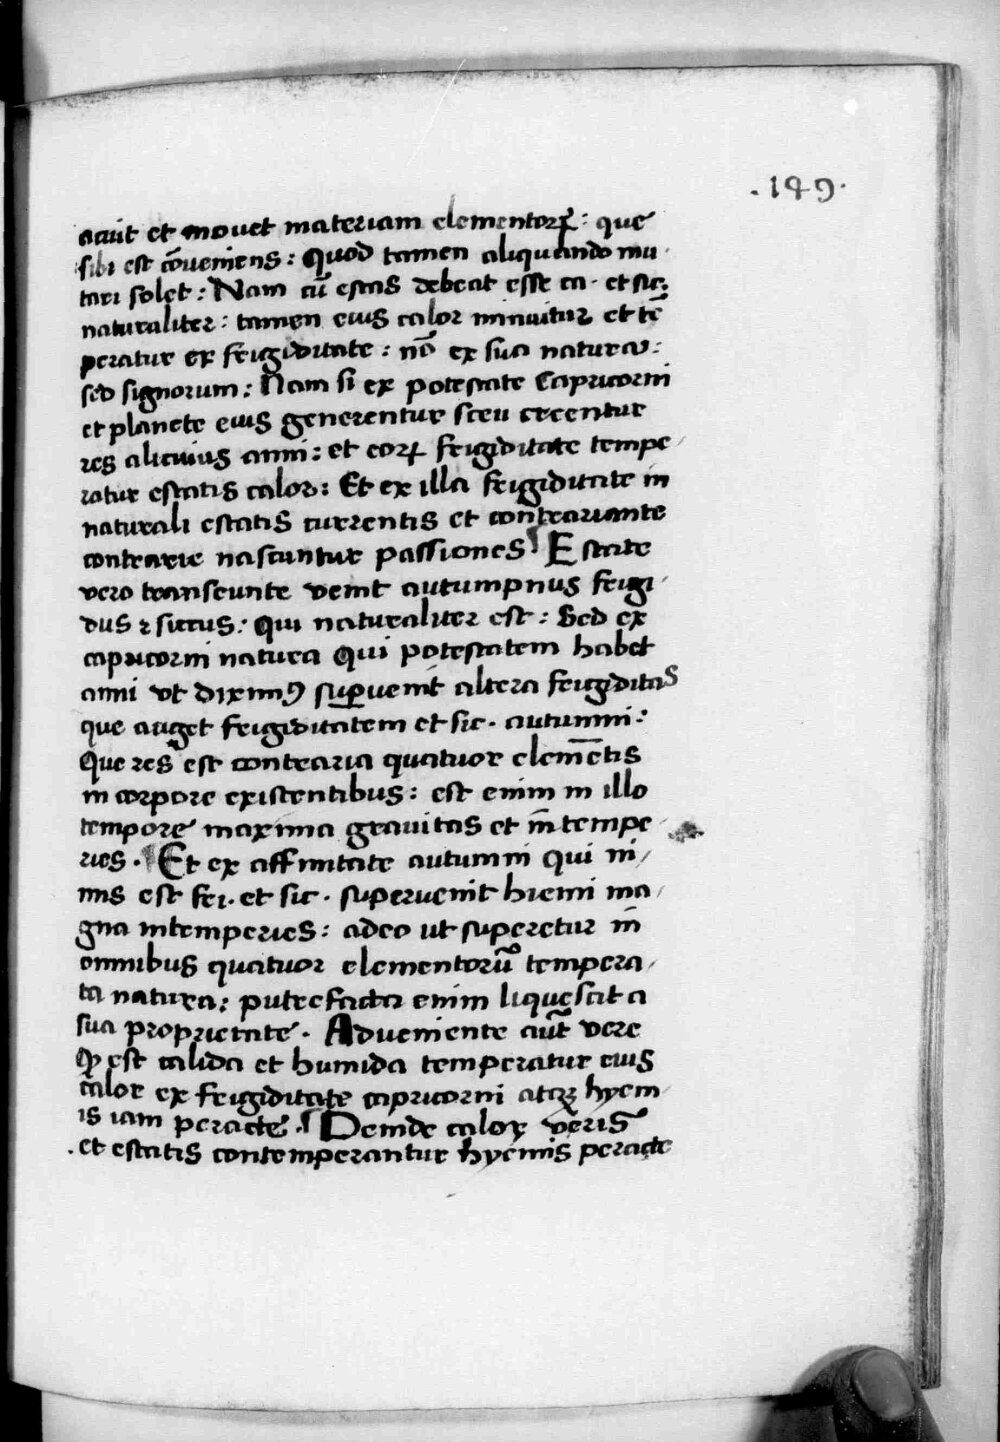 .149.
acuit et mouet materiam elementoꝝ: que
sibi est cōueniens: Quod tamen aliquando mu-
tari solet: Nam cū estas debeat esse ca. et sic.
naturaliter: tamen eius calor minuitur et tē
peratur ex frigiditate: nō ex sua natura:
sed signorum: Nam si ex potestate Capricorni
et planete eius generentur seu creentur
res alicuius anni: et eoꝝ frigiditate tempe-
ratur estatis calor: Et ex illa frigiditate in
naturali estatis currentis et contrariante
contrarie nascuntur passiones ¶ Estate
vero transeunte venit autumpnus frigi-
dus ⁊ siccus: Qui naturaliter est: Sed ex
capricorni natura Qui potestatem habet
anni vt diximꝰ suꝑuenit altera frigiditas
que auget frigiditatem et sic. autumni:
Que res est contraria quatuor elemētis
in corpore existentibus: est enim in illo
tempore maxima grauitas et īntempe-
ries. ¶ Et ex affinitate autumni qui ni-
mis est fri. et sic. superuenit hiemi ma-
gna intemperies: adeo ut superetur īn
omnibus quatuor elementorū tempera-
ta natura: putrefacta enim liquescit a
sua proprietate. Adueniente aūt vere
Qꝫ est calida et humida temperatur eius
calor ex frigiditate capricorni atqꝫ hyem-
is iam peracte. ¶ Deinde calor veris
et estatis contemperantur hyemis peracte